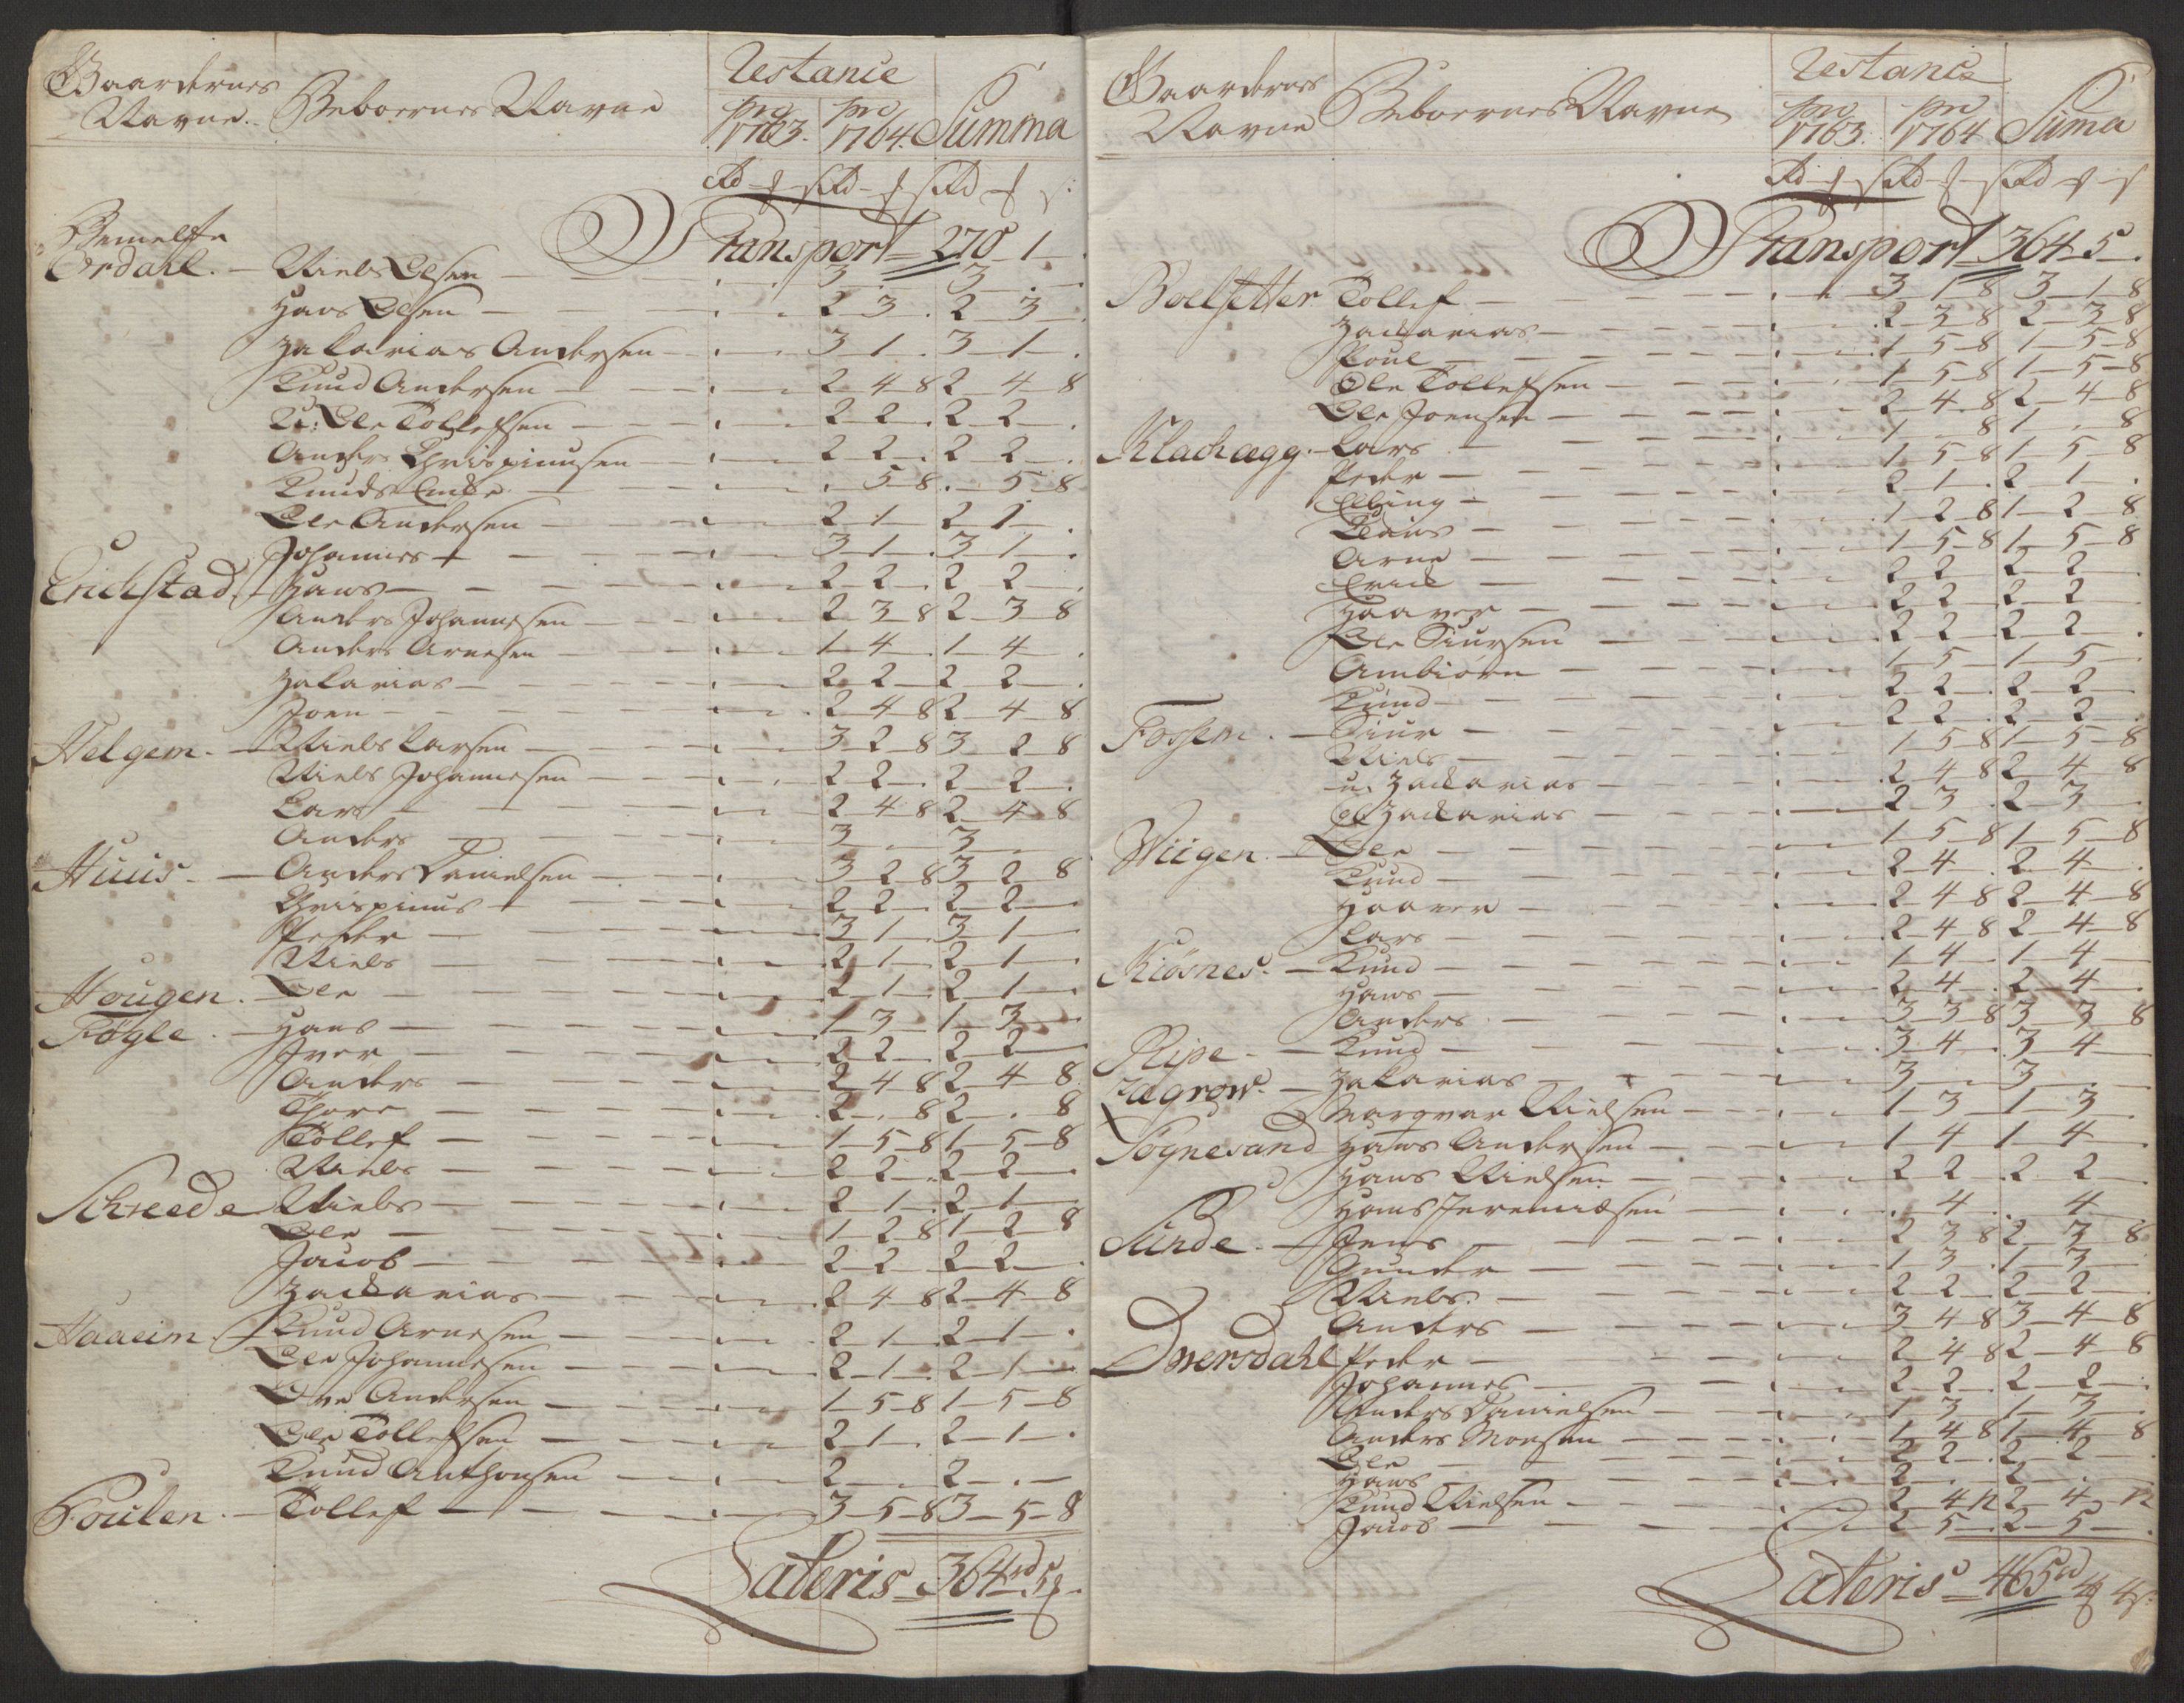 Gaardernes Navne. Beboernes Navne Restance pro 1763. pro 1764. Summa
rd ƒ s rd ƒ s rd ƒ s
Transport 270 1 .
Bemelte
Ordahl. Niels Olsen 3 . . 3 . .
Hans Olsen 2 3 . 2 3 .
Zakarias Andersen 3 1 . 3 1 .
Knud Andersen 2 4 8 2 4 8
U: Ole Tollefsen 2 2 . 2 2 .
Anders Chrispinusen 2 2 . 2 2 .
Knuds Enke . 5 8 . 5 8
Ole Andersen 2 1 2 1 .
Johannes 3 1 . 3 1 .
Erichstad. Hans 2 2 . 2 2 .
Anders Johannesen 2 3 8 2 3 8
Anders Arnesen 1 4 . 1 4 .
Zakarias 2 2 2 2 .
Joen 2 4 8 2 4 8
Helgem. Niels Larsen 3 2 8 3 2 8
Niels Johannesen 2 2 . 2 2 .
Lars 2 4 8 2 4 8
Anders 3 . 3 .
Huus. Anders Danielsen 3 2 8 3 2 8
Chrispinus 2 2 2 2
Peder 3 1 3 1
Niels 2 1 2 1
Hougen. Ole 2 1 2 1
Føgle. Hans 1 3 1 3
Iver 2 2 2 2
Anders 2 4 8 2 4 8
Thore 2 . 8 2 . 8
Tollef 1 5 8 1 5 8
Niels 2 2 2 2
Schreede Niels 2 1 2 1
Ole 1 2 8 1 2 8
Jacob 2 2 2 2 .
Zackarias 2 4 8 2 4 8
Haaeim. Knud Arnesen 2 1 2 1 .
Ole Johannesen 2 1 2 1
Ove Andersen 1 5 8 1 5 8
Ole Tollefsen 2 1 . 2 1 .
Knud Anthonsen 2 2 .
Foulen. Tollef 3 5 8 3 5 8
Lateris 364 rd 5 ƒ
Gaardernes Navne Beboernes Navne Restance pro 1763. pro 1764 Suma
rd ƒ s rd ƒ s rd ƒ s
Transport 364 5 .
Boelsetter Tollef 3 1 8 3 1 8
Zackarias 2 3 8 2 3 8
Poul 1 5 8 1 5 8
Ole Tollefsen 1 5 8 1 5 8
Ole Joensen 2 4 8 2 4 8
Klachegg. Lars 1 . 8 1 . 8
Peder 1 5 8 1 5 8
Elling 2 1 . 2 1 .
Claus 1 2 8 1 2 8
Arne 1 5 8 1 5 8
Erick 2 2 2 2
Haaver 2 2 2 2
Ole Siursen 2 2 2 2 .
Ambiørn 1 5 1 5
Knud 2 2 . 2 2
Fossem. Siur 2 2 . 2 2 .
Niels 1 5 8 1 5 8
u. Zackarias 2 4 8 2 4 8
Zackarias 2 3 . 2 3
Wiigen. Ole 1 5 8 1 5 8
Knud 2 4 . 2 4 .
Haaver 2 4 8 2 4 8
Lars 2 4 8 2 4 8
Kiøsnes. Knud 1 4 1 4
Hans 2 4 . 2 4 .
Anders 3 3 8 3 3 8
Ripe Knud 3 4 . 3 4
Zægrow. Zakarias 3 3 .
Margvar Nielsen 1 3 1 3
Sognesand Hans Andersen 1 4 1 4 .
Hans Nielsen 2 2 2 2
Hans Jeremiesen . 4 4
Sunde. Jens 2 3 8 2 3 8
Gunder 1 3 . 1 3 .
Niels 2 2 2 2
Anders 3 4 8 3 4 8
Dversdahl Peder 2 4 8 2 4 8
Johannes 2 2 2 2 .
Anders Danielsen 1 3 1 3
Anders Monsen 1 4 8 1 4 8
Ole 2 2 2 2
Hans 2 2 .
Knud Nielsen 2 4 12 2 4 12
Jacob 2 5 2 5 .
Lateris 465 rd 4 ƒ 4 s.